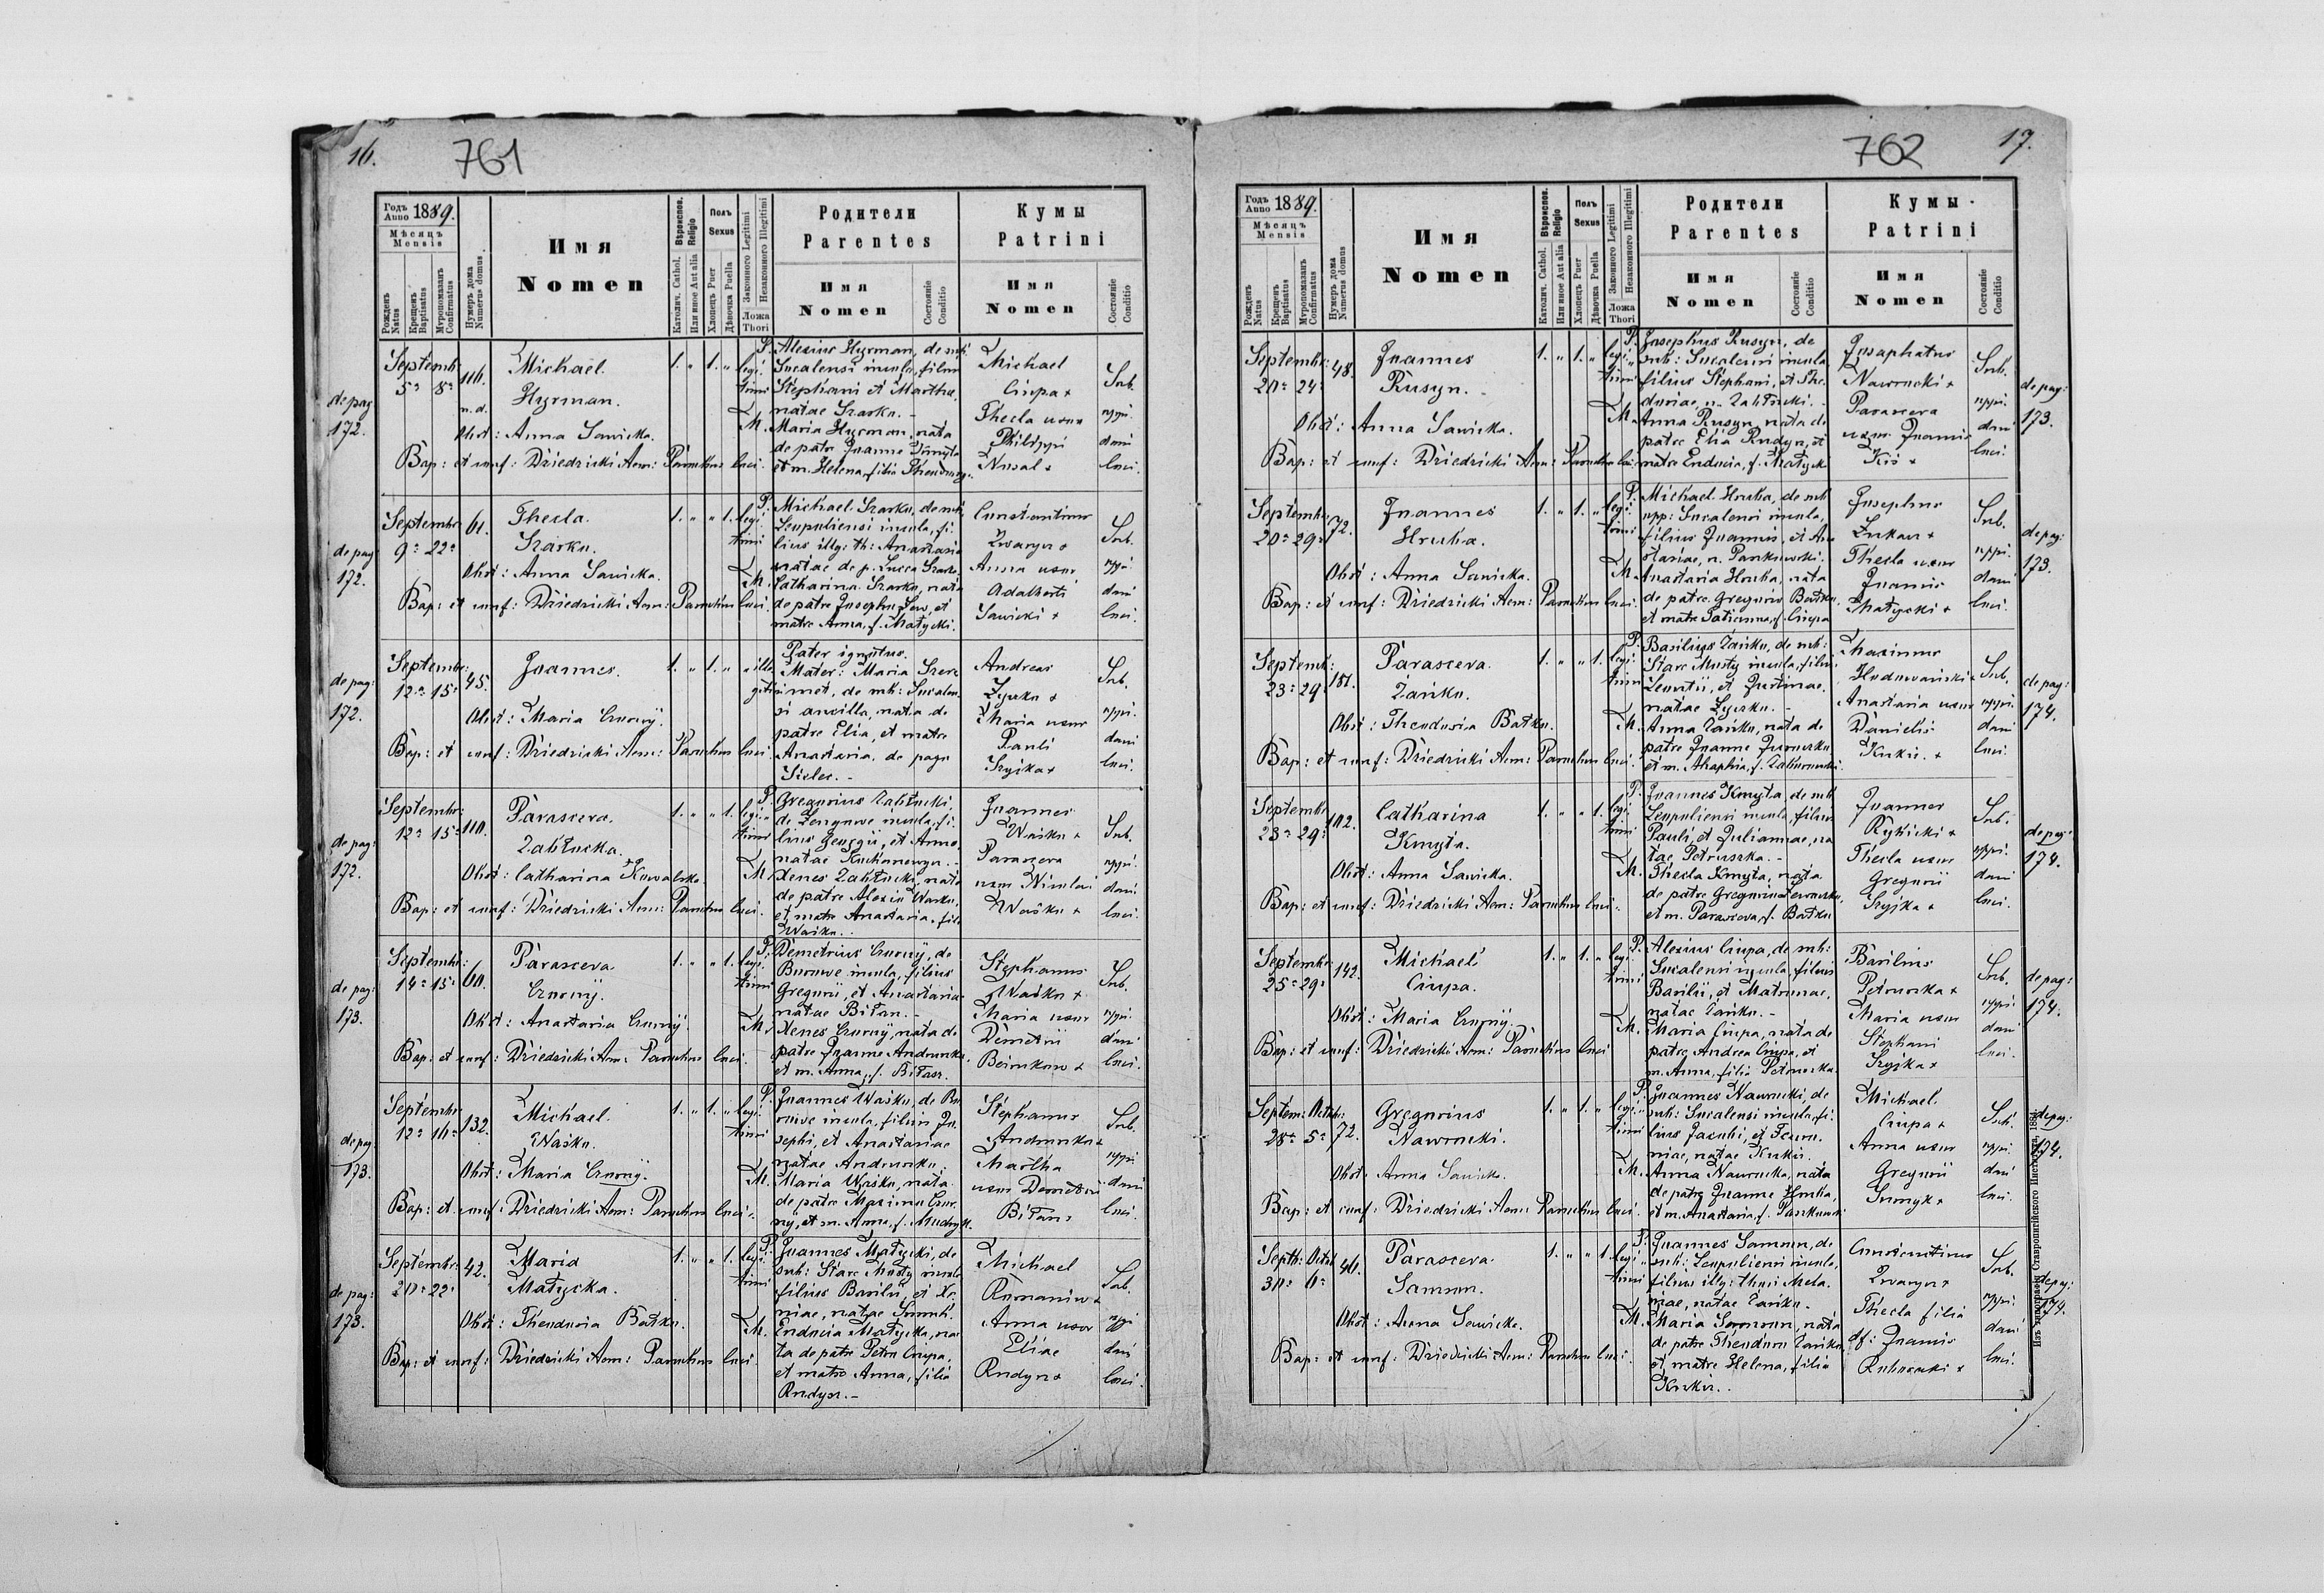 16.
761
Годъ Anno 1889.
Мѣсяцъ Mensis
Рожденъ Natus
Крещенъ Baptisatus
Мѵропомазанъ Confirmatus
Нумеръ дома Numerus domus
Имя
Nomen
Вѣроиспов. Religio
Католич. Cathol.
Или иное Aut alia
Полъ
Sexus
Хлопецъ Puer
Дѣвочка Puella
Законного Legitimi
Незаконного Illegitimi
Ложа
Thori
Родители
Parentes
Имя
Nomen
Состояніе
Conditio
Кумы
Patrini
Имя
Nomen
Состояніе
Conditio
de pag
172.
Septembr:
5a 8a
116.
n.d.
Michael
Hyrman.
Obst: Anna Sawicka.
Bap: et conf: Driedricki Aem: Parochus loci.
1. " 1. "
legi
timi
P. Alexius Hyrman, de sub:
Sucalensi incola, filius
Stephani et Martha,
natae Szarko. -
M. Maria Hyrman, nata
de patre Joanne Kmyta
et m. Helena, filia
Michael
Ciupa +
Thecla uxor
Philippi
Nosal +
Sub.
oppi
dani
loci.
de pag
172.
Septembr
9a 22a
61.
Thecla
Szarko.
Obst: Anna Sawicka.
Bap: et conf: Driedricki Aem: Parochus loci.
1. " " 1.
legi
timi
P. Michael Szarko, de sub:
Leopoliensi incola, fi-
lius illg: th: Anastasia
natae de p. Lucca Szarko
M. Catharina Szarko, nata
de patre Josepho Sew, et
matre Anna, f. Matycki.
Constantinus
Zwaryn +
Anna uxor
Adalberti
Sawicki +
Sub.
oppi
dani
loci.
de pag:
172.
Septembr:
12a 15a
45.
Joannes.
Obst: Maria Czornyj.
Bap: et conf: Driedricki Aem: Parochus loci
1. " 1. "
ille
gitimi
Pater ignotus.
Mater: Maria Szere
met, de sub: Sucalen
si ancilla, nata de
patre Elia, et matre
Anastasia, de pago
Sielec. -
Andreas
Zyrko +
Maria uxor
Pauli
Szyjka +
Sub.
oppi.
dani
loci.
de pag:
172.
Septembr
12a 15a
110.
Parasceva
Zabłocka.
Obst: Catharina Kowalska.
Bap: et conf: Driedricki Aem: Parochus loci.
1. " " 1.
legi
timi
P. Gregorius Zabłocki,
de Zengowe incola, fi
lius Georgii, et Anna
natae Kochanowyn. -
M. Xenes Zabłocki, nata
de patre Alexio Wasko,
et matre Anastasia, filia
Wasko. .
Joannes
Wasko +
Parasceva
uxor Nicolai
Wasko +
Sub.
oppi.
dani
loci.
de pag:
173.
Septembr:
14a 15a
60.
Parasceva
Czornyj.
Obst: Anastasia Czornyj.
Bap: et conf: Driedricki Aem: Parochus loci.
1. " " 1.
legi
timi
P. Demetrius Czornyj, de
Borowe incola, filius
Gregorii, et Anastasia
natae Biłan. -
M. Xenes Czornyj, nata de
patre Joanne Andrusko
et m. Anna, f. Biłasz.
Stephanus
Wasko +
Maria uxor
Demetrii
Bojmkow +
Sub.
oppi.
dani
loci.
de pag
173.
Septembr
12a 16a
132.
Michael
Wasko.
Obst: Maria Czornyj.
Bap: et conf: Driedricki Aem: Parochus loci.
1. " 1. "
legi
timi
P. Joannes Wasko, de Bo
rowe incola, filius Jo
sephi, et Anastasiae
natae Andrusko.
M. Maria Wasko, nata
de patre Maximo Czor
nyj, et m. Anna, f. Mudryk.
Stephanus
Andrusko +
Martha
uxor Demetrii
Biłan +
Sub.
oppi.
dani
loci.
de pag:
173.
Septembr
20a 22a
42.
Maria
Matycka.
Obst: Theodosia Batko.
Bap: et conf: Driedricki Aem: Parochus loci.
1. " " 1.
legi
timi
P. Joannes Matycki, de
sub: Stare Misty incola
filius Basilii, et Xe
niae, natae Smuk.
M. Eudocia Matycka, na
ta de patre Petro Ciupa,
et matre Anna, filia
Rudyn. -
Michael
Romaniw +
Anna uxor
Eliae
Rudyn +
Sub.
oppi
dani
loci.
762
17.
Годъ Anno 1889.
Мѣсяцъ Mensis
Рожденъ Natus
Крещенъ Baptisatus
Мѵропомазанъ Confirmatus
Нумеръ дома Numerus domus
Имя
Nomen
Вѣроиспов. Religio
Католич. Cathol.
Или иное Aut alia
Полъ
Sexus
Хлопецъ Puer
Дѣвочка Puella
Законного Legitimi
Незаконного Illegitimi
Ложа
Thori
Родители
Parentes
Имя
Nomen
Состояніе
Conditio
Кумы
Patrini
Имя
Nomen
Состояніе
Conditio
Septembr:
20a 24a
48.
Joannes
Rusyn.
Obst: Anna Sawicka.
Bap: et conf: Driedricki Aem: Parochus loci
1. " 1. "
legi
timi
P. Josephus Rusyn, de
sub: Sucalensi incola
filius Stephani, et Theo
dosiae, n. Zabłocki. -
M. Anna Rusyn, nata de
patre Elia Rudyn, et
matre Eudocia, f. Matycki
Josaphatus
Nawrocki +
Parasceva
uxor Joannis
Kis +
Sub.
oppi.
dani
loci.
de pag:
173.
Septembr:
20a 29a
72.
Joannes
Hruba.
Obst: Anna Sawicka.
Bap: et conf: Driedricki Aem: Parochus loci.
1. " 1. "
legi
timi
P. Michael Hruba, de sub
opp: Sucalensi incola,
filius Joannis, et Ana
stasiae, n. Pankowski.
M. Anastasia Hruba, nata
de patre Gregorio Batko,
et matre Tatianna, f. Ciupa
Josephus
Łukan +
Thecla uxor
Joannis
Matycki +
Sub.
oppi.
dani
loci.
de pag:
173.
Septemb:
23a 29a
181.
Parasceva
Zanko.
Obst: Theodosia Batko.
Bap: et conf: Driedricki Aem: Parochus loci.
1. " " 1.
legi
timi
P. Basilius Zanko, de sub:
Stare Misty incola, filius
Leontii, et Justinae,
natae Zyrko. -
M. Anna Zanko, nata de
patre Joanne
et m. Ahaphia, f.
Maximus
Hodowanski +
Anastasia uxor
Danielis
Kukiz. +
Sub.
oppi.
dani
loci.
de pag:
174.
Septembr
23a 29a
102.
Catharina
Kmyta.
Obst: Anna Sawicka.
Bap: et conf: Driedricki Aem: Parochus loci.
1. " " 1.
legi
timi
P. Joannes Kmyta, de sub
Leopoliensi incola, filius
Pauli, et Juliannae, na
tae Petruszka. -
M. Thecla Kmyta, nata
de patre Gregorio
et m. Parasceva, f. Batko
Joannes
Rykicki +
Thecla uxor
Gregorii
Szyjka +
Sub.
oppi.
dani
loci.
de pag:
174.
Septembr
25a 29a
142.
Michael
Ciupa.
Obst: Maria Czornyj.
Bap: et conf: Driedricki Aem: Parochus loci
1. " 1. "
legi
timi
P. Alexius Ciupa, de sub:
Sucalensi incola, filius
Basilii, et Matronae,
natae Zanko. -
M. Maria Ciupa, nata de
patre Andrea Ciupa, et
m. Anna, filia Petruszka.
Basilius
Petruszka +
Maria uxor
Stephani
Szyjka +
Sub.
oppi.
dani
loci.
de pag:
174.
Septem: Octob:
28a 5a
72.
Gregorius
Nawrocki.
Obst: Anna Sawicka.
Bap: et conf: Driedricki Aem: Parochus loci.
1. " 1. "
legi
timi
P. Joannes Nawrocki, de
sub: Sucalensi incola, fi
lius Jacobi, et Feuro
niae, natae Kukiz.
M. Anna Nawrocka, nata
de patre Joanne Hruba,
et m. Anastasia, f. Pankowski
Michael
Ciupa +
Anna uxor
Gregorii
Sumyk +
Sub.
oppi.
dani
loci.
de pag:
174.
Septb: Octob
30a 6a
46.
Parasceva
Samson.
Obst: Anna Sawicka.
Bap: et conf: Driedricki Aem: Parochus loci.
1. " " 1.
legi
timi
P. Joannes Samson, de
sub: Leopoliensi incola,
filius illg: thori Mela
niae, natae Zanko. -
M. Maria Samson, nata
de patre Theodoro Zanko,
et matre Helena, filia
Kukiz. .
Constantinus
Zwaryn +
Thecla filia
df: Joannis
+
Sub.
oppi.
dani
loci.
de pag:
174.
Изъ типографіи Ставропигійского Института. 188